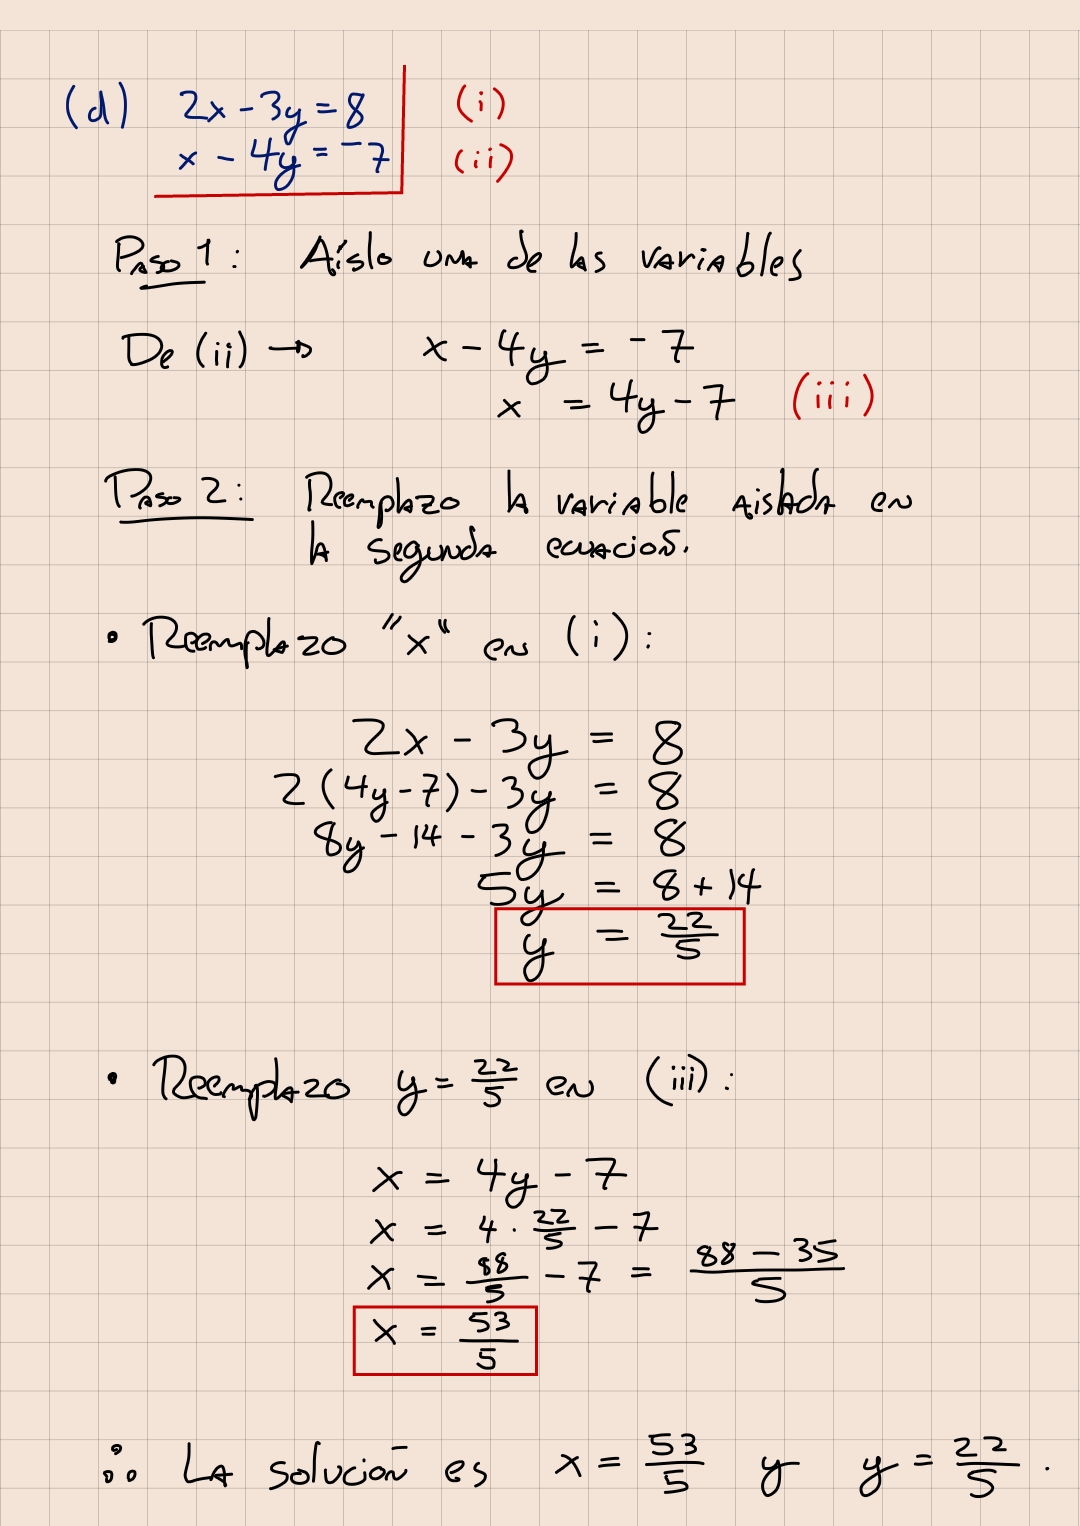 (d) 2x - 3y = 8 (i)
x - 4y = -7 (ii)
Paso 1: Aíslo una de las variables
De (ii) → x - 4y = -7
x = 4y - 7 (iii)
Paso 2: Reemplazo la variable aislada en
la segunda ecuación.
• Reemplazo "x" en (i):
2x - 3y = 8
2(4y-7) - 3y = 8
8y - 14 - 3y = 8
5y = 8 + 14
y = 22/5
• Reemplazo y = 22/5 en (iii):
x = 4y - 7
x = 4 · 22/5 - 7
x = 88/5 - 7 = (88 - 35)/5
x = 53/5
∴ La solución es x = 53/5 y y = 22/5.